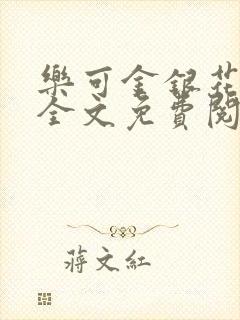 樂可金銀花
全文免費閱
蔣文紅